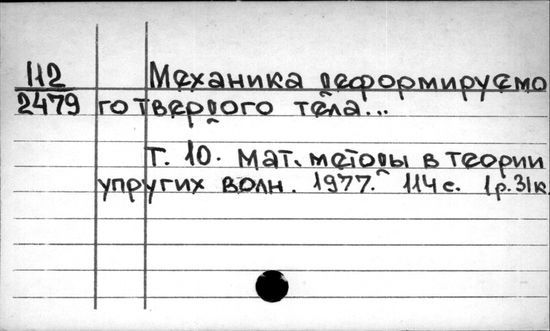 112
2479
Механика деформируемо
го твердого тела...
Т. 10. Мат. методы в теории
упругих волн. 1977. 114 с. 1р.31к